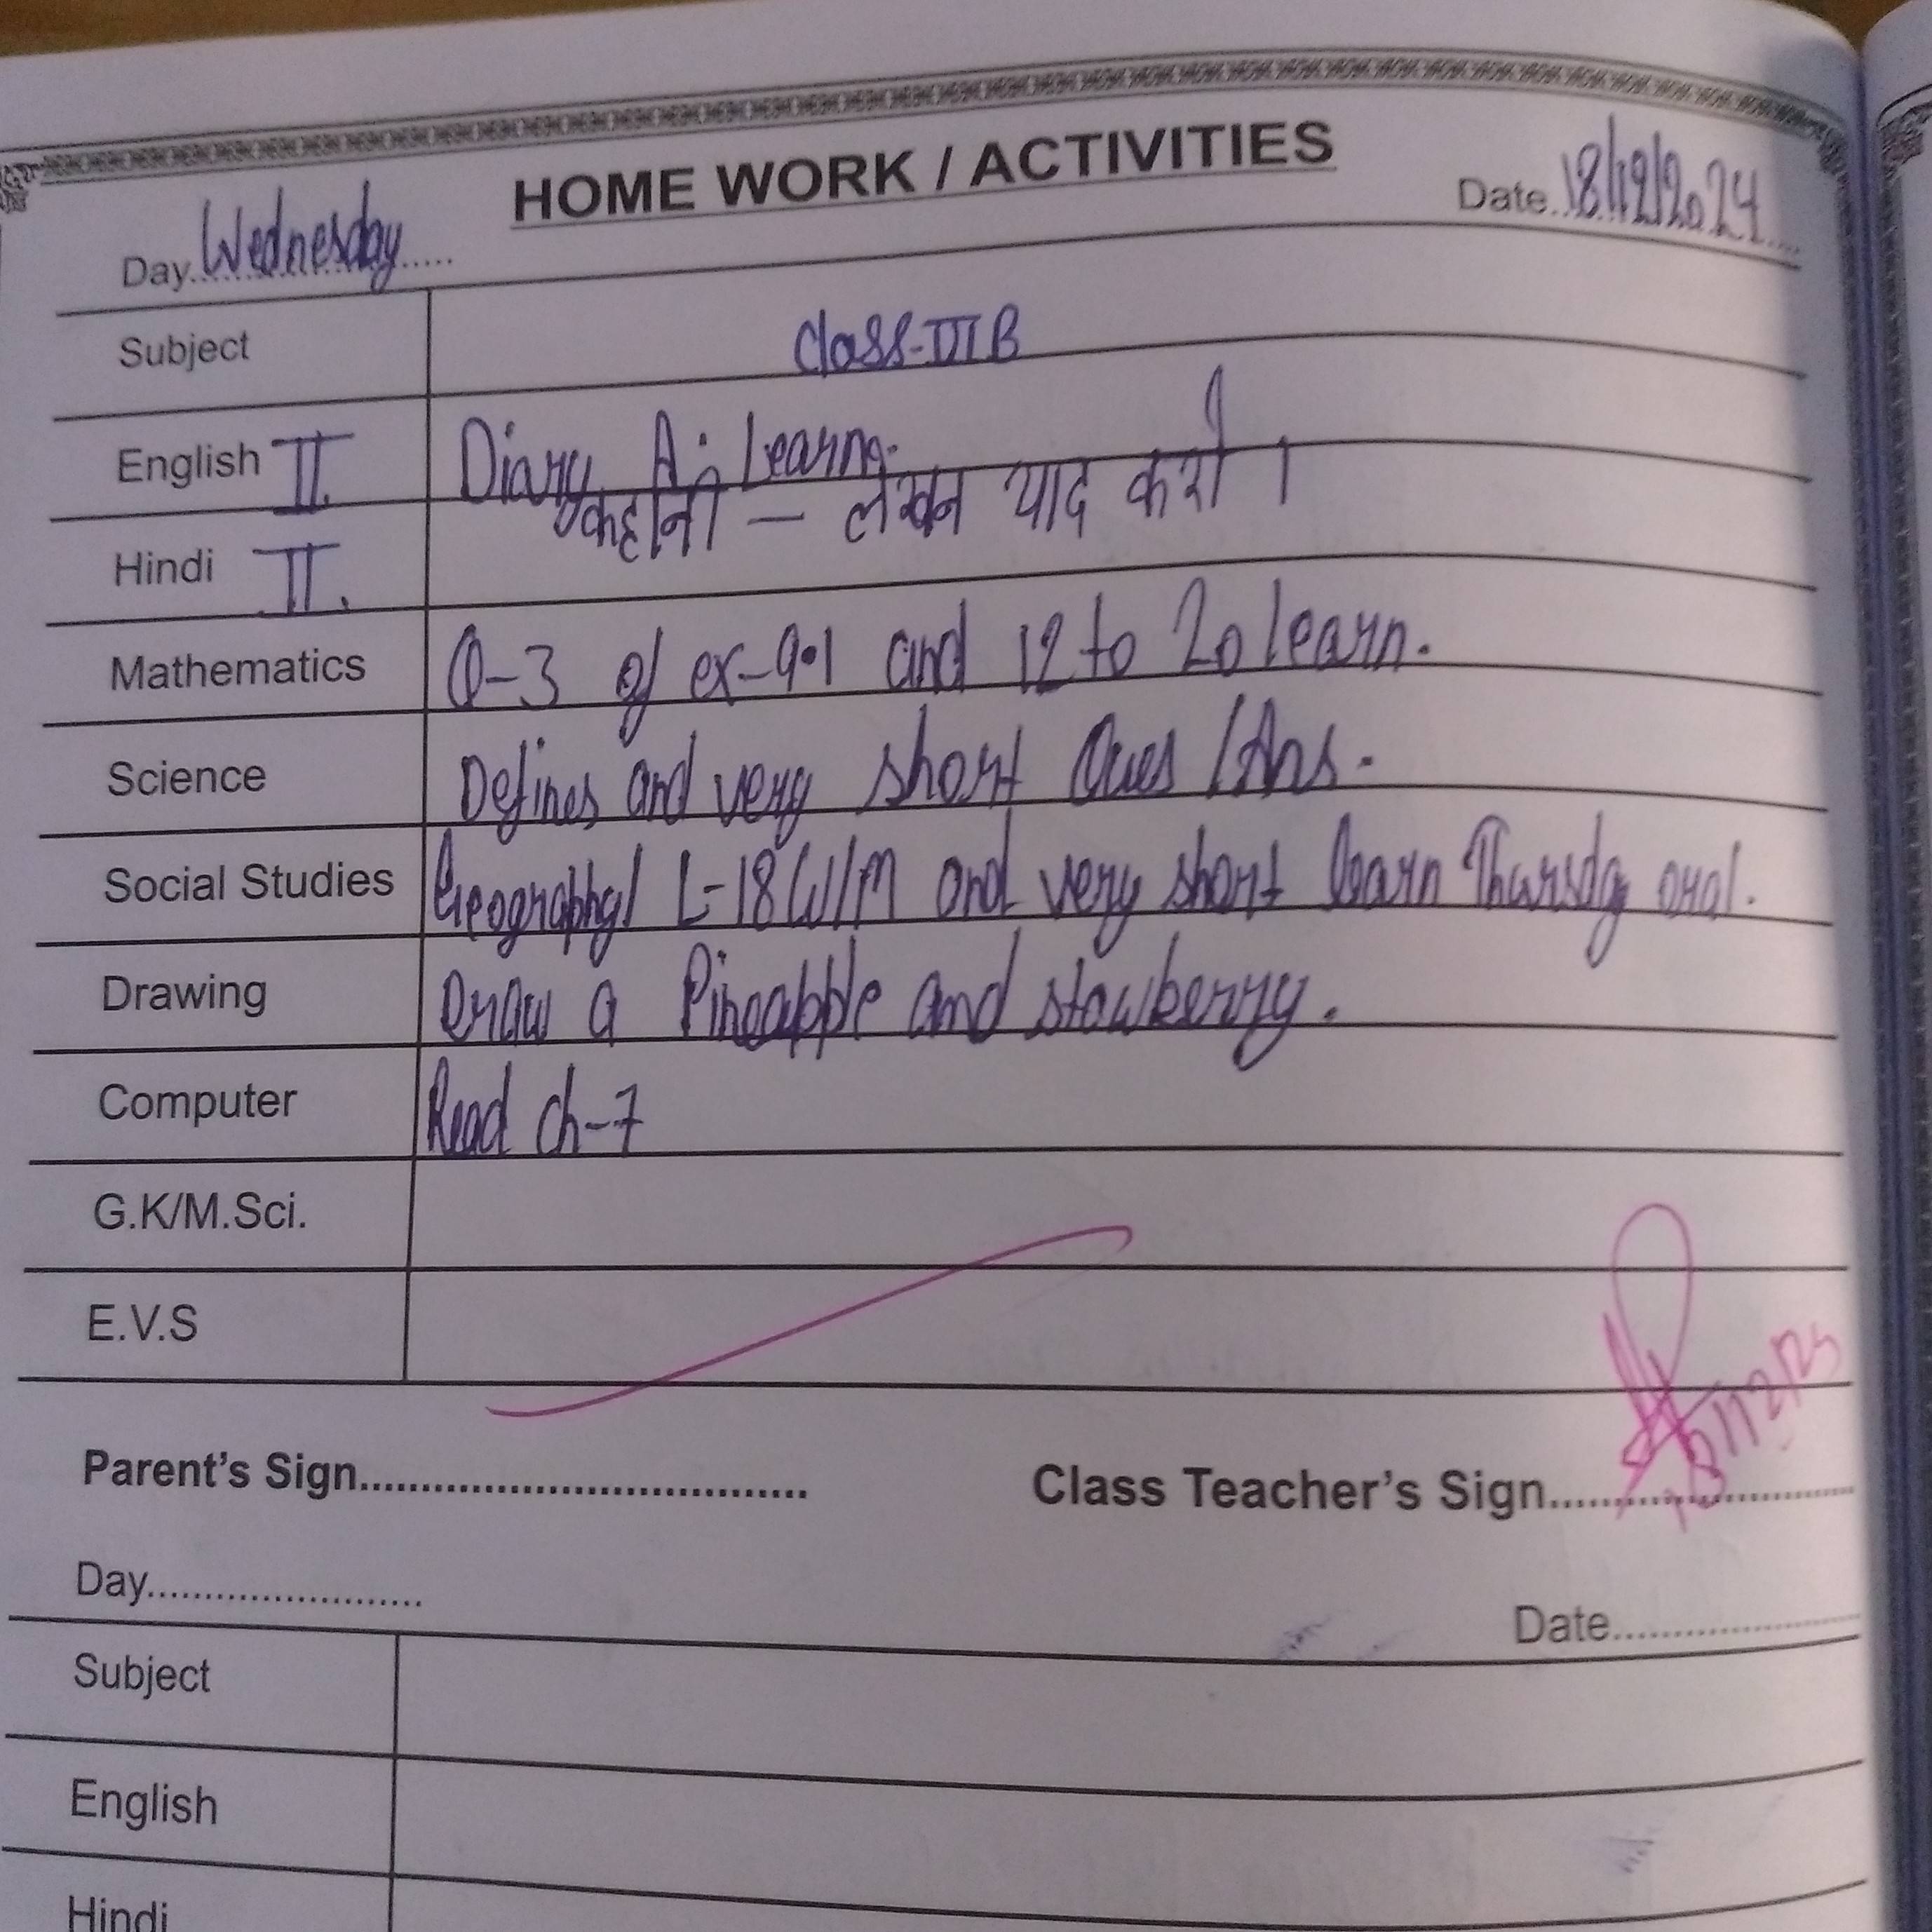 HOME WORK / ACTIVITIES
Day Wednesday Date 18/12/2024
Subject Class-III B
English II. Diary A: Learn.
Hindi II. कहानी – लेखन याद करो ।
Mathematics Q-3 of ex-9.1 and 12 to 20 learn.
Science Defines and very short Ques /Ans.
Social Studies L-18 W/M and very short learn Thursday oral.
Drawing Draw a Pineapple and stawberry.
Computer Read ch-7
G.K/M.Sci.
E.V.S
Parent's Sign Class Teacher's Sign
Day Date
Subject
English
Hindi